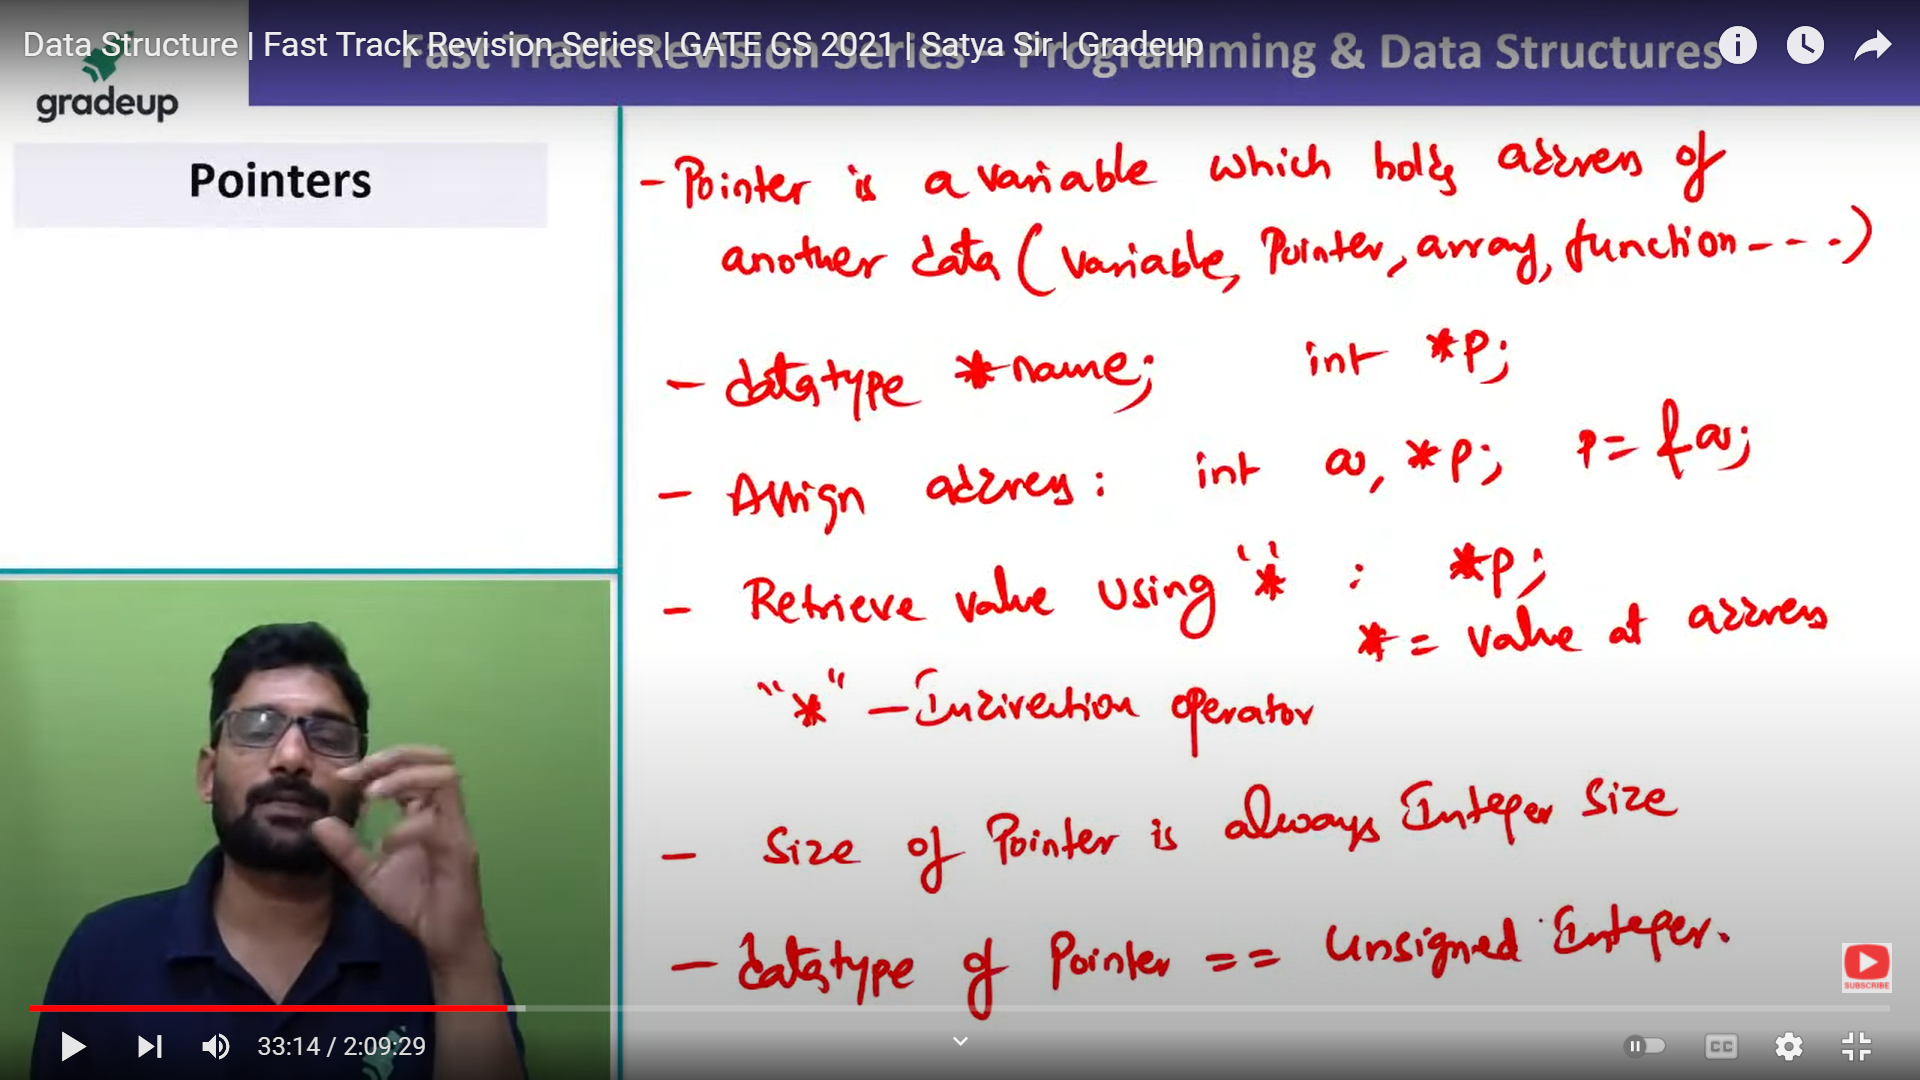 Data Structure | Fast Track Revision Series | GATE CS 2021 | Satya Sir | Gradeup
Fast Track Revision Series - Programming & Data Structures
gradeup
Pointers
- Pointer is a variable which holds address of
another data (variable, Pointer, array, function - - - .)
- datatype *name; int *p;
- Assign address: int a, *p; p = &a;
- Retrieve value using '*' : *p;
* = value at address
"*" - Indirection operator
- Size of Pointer is always Integer size
- datatype of Pointer == Unsigned Integer.
SUBSCRIBE
33:14 / 2:09:29
CC